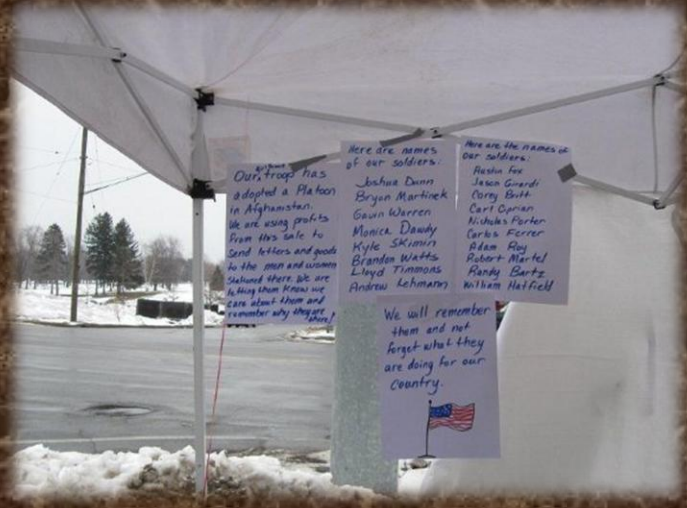 Girl Scout
Our troop has
adopted a Platoon
in Afghanistan.
We are using profits
from this sale to
send letters and goods
to the men and women
stationed there. We are
letting them know we
care about them and
remember why they are
there!
Here are names
of our soldiers:
Joshua Dunn
Bryan Martinek
Gavin Warren
Monica Dawdy
Kyle Skimin
Brandon Watts
Lloyd Timmons
Andrew Lehmann
Here are the names of
our soldiers:
Austin Fox
Jason Girardi
Corey Britt
Carl Ciprian
Nicholas Porter
Carlos Ferrer
Adam Roy
Robert Martel
Randy Bartz
William Hatfield
We will remember
them and not
forget what they
are doing for our
Country.